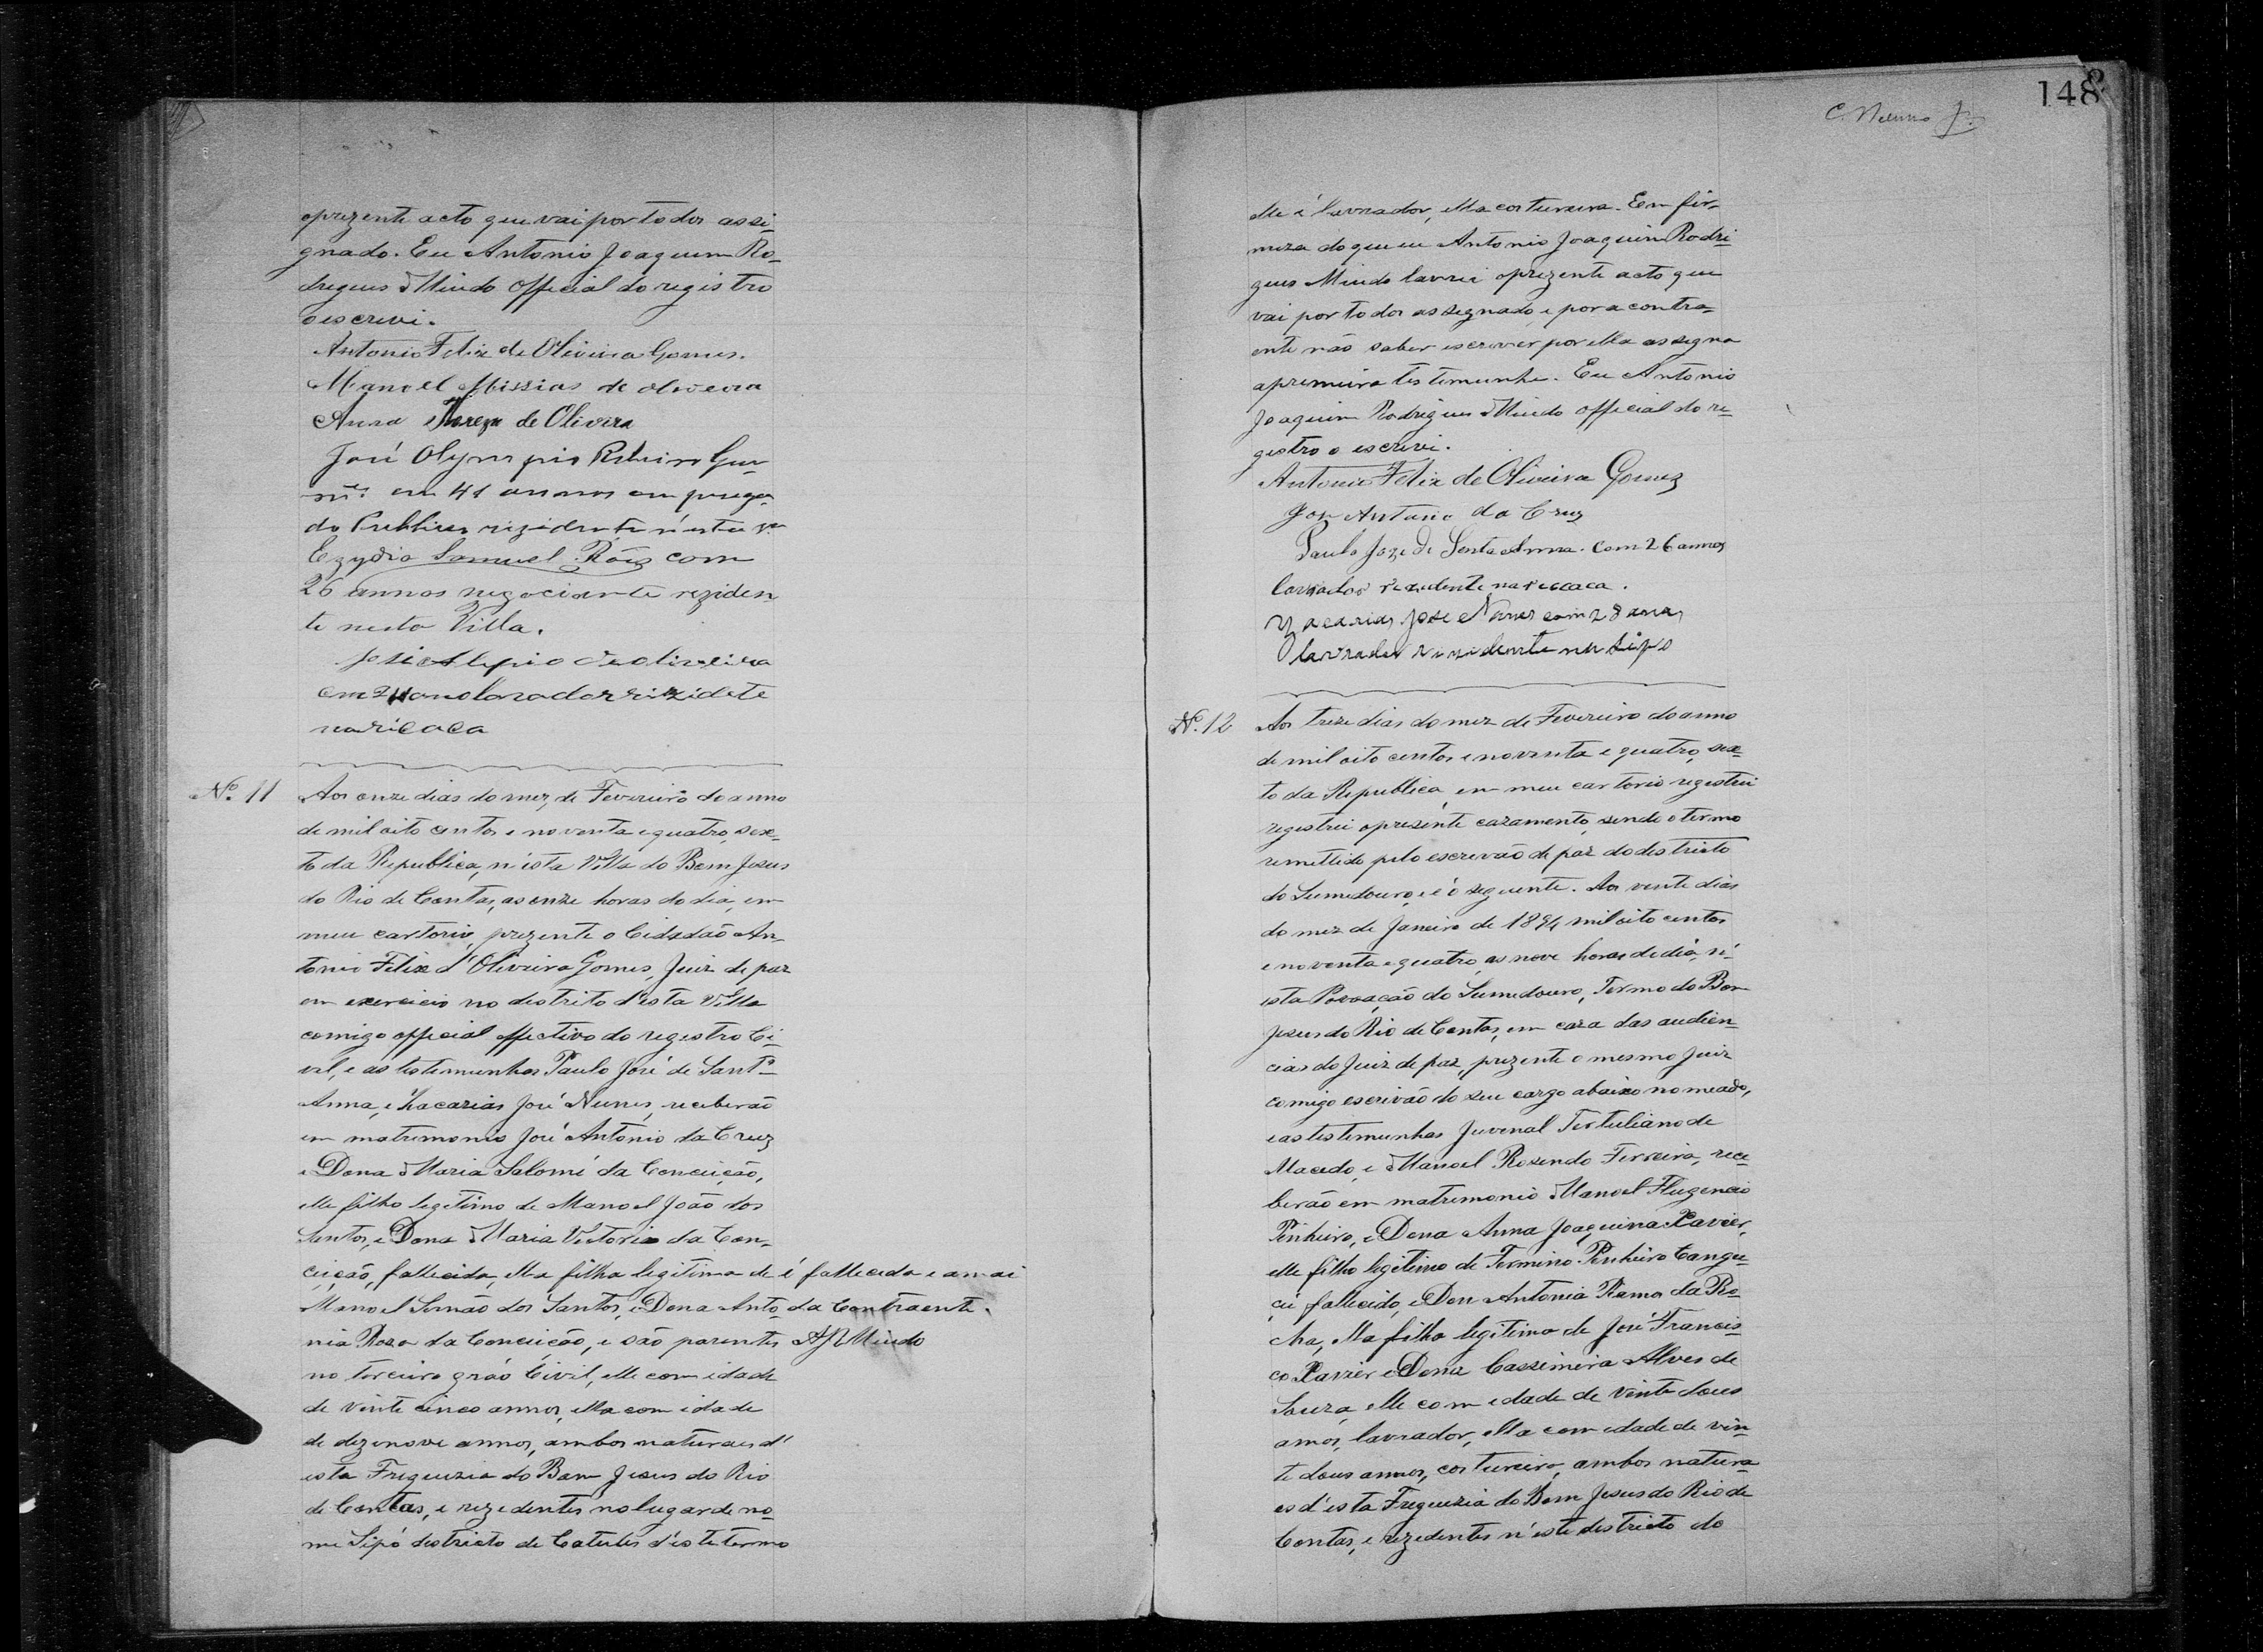 oprezente acto que vai por todos assi-
gnado. Eu Antonio Joaquim Ro-
drigues Miudo Official do registro
o escrevi.
Antonio Felix de Oliveira Gomes.
Manoel Missias de oliveira
Anna Thereza de Olivera
José Olympio Ribeiro
com 41 annos em prega-
do Publico rezidente n'esta
Egydio Samuel Róiz com
26 annos negociante reziden
te nesta Villa.
José Alepio de oliveira
lavrador rizidete
naricaca
Nº. 11
Aos onze dias do mez de Fevereiro do anno
de mil oito centos e noventa e quatro, sex-
to da Republica, n'esta Villa do Bom Jesus
do Rio de Contas, as onze horas do dia, em
meu cartorio, prezente o Cidadão An-
tonio Felix d'Oliveira Gomes, Juiz de paz
em exercicio no destrito d'esta Villa
comigo official effectivo do registro Ci-
vil, e as testemunhas Paulo José de Sant'-
Anna, e Zacarias José Nunes, receberão
em matremonio José Antonio da Cruz
e Dona Maria Salomé da Conceição,
elle filho legetimo de Manoel João dos
Santos, e Dona Maria Victoria da Con-
ceição, fallecida, ella filha legitima de é fallecida e a mai
Manoel Simão dos Santos, e Dona Anto da Contraente.
nia Roza da Conceição, e são parentes AJRMiudo
no terceiro gráo Civil, elle com idade
de vinte cinco annos, ella com idade
de dezenove annos, ambos naturaes d'
esta Freguezia do Bom Jesus do Rio
de Contas, e rezedentes no lugar de no-
me Sipó destricto de Catules d'este termo
148
C. Nemno Jr.
elle é lavrador, ella costureira. Em fir-
meza do que eu Antonio Joaquim Rodri-
gues Miudo lavrei oprezente acto que
vai por todos assegnado, e por a contra-
ente não saber escrever por ella assegna
apremeira testemunha. Eu Antonio
Joaquim Rodrigues Miudo official do re-
gistro o escrevi.
Antonio Felix de Oliveira Gomes
Joze Antonio da Cruz
Paulo Joze de Santa Anna. Com 26 annos
lavrador rezedente na recaca.
Zacarias Jose Nunes com 28 anos
lavrador rezidente no Sipo
Nº. 12
Aos treze dias do mez de Fevereiro do anno
de mil oito centos e noventa e quatro, sex-
to da Republica, em meu cartorio registrei
registrei opresente cazamento, sendo o termo
remettido pelo escrevão de paz do destricto
do Sumidouro, e é o seguente. Aos vinte dias
do mez de Janeiro de 1894 mil oito centos
e noventa e quatro, as nove horas do dia, n'
esta Povoação do Sumidouro, Termo do Bom
Jesus do Rio de Contas, em caza das audien-
cias do Juiz de paz, prezente o mesmo Juiz
comigo escrivão do seu cargo abaixo nomeado,
e as testemunhas Juvenal Tertuliano de
Macedo, e Manoel Rozendo Ferreira, rece-
berão em matremonio Manoel Flugencio
Pinheiro, e Dona Anna Joaquina Xavier,
elle filho legitimo de Fermino Pinheiro Cangu-
çú fallecido, e Don Antonia Ramos da Ro-
cha, ella filha legitima de José Francis-
co Xavier e Dona Cassimira Alves de
Souza, elle com edade de vinte dous
annos, lavrador, ella com edade de vin-
te dous annos, costureira, ambos natura-
es d'esta Freguezia do Bom Jesus do Rio de
Contas, e rezedentes n'este destricto do